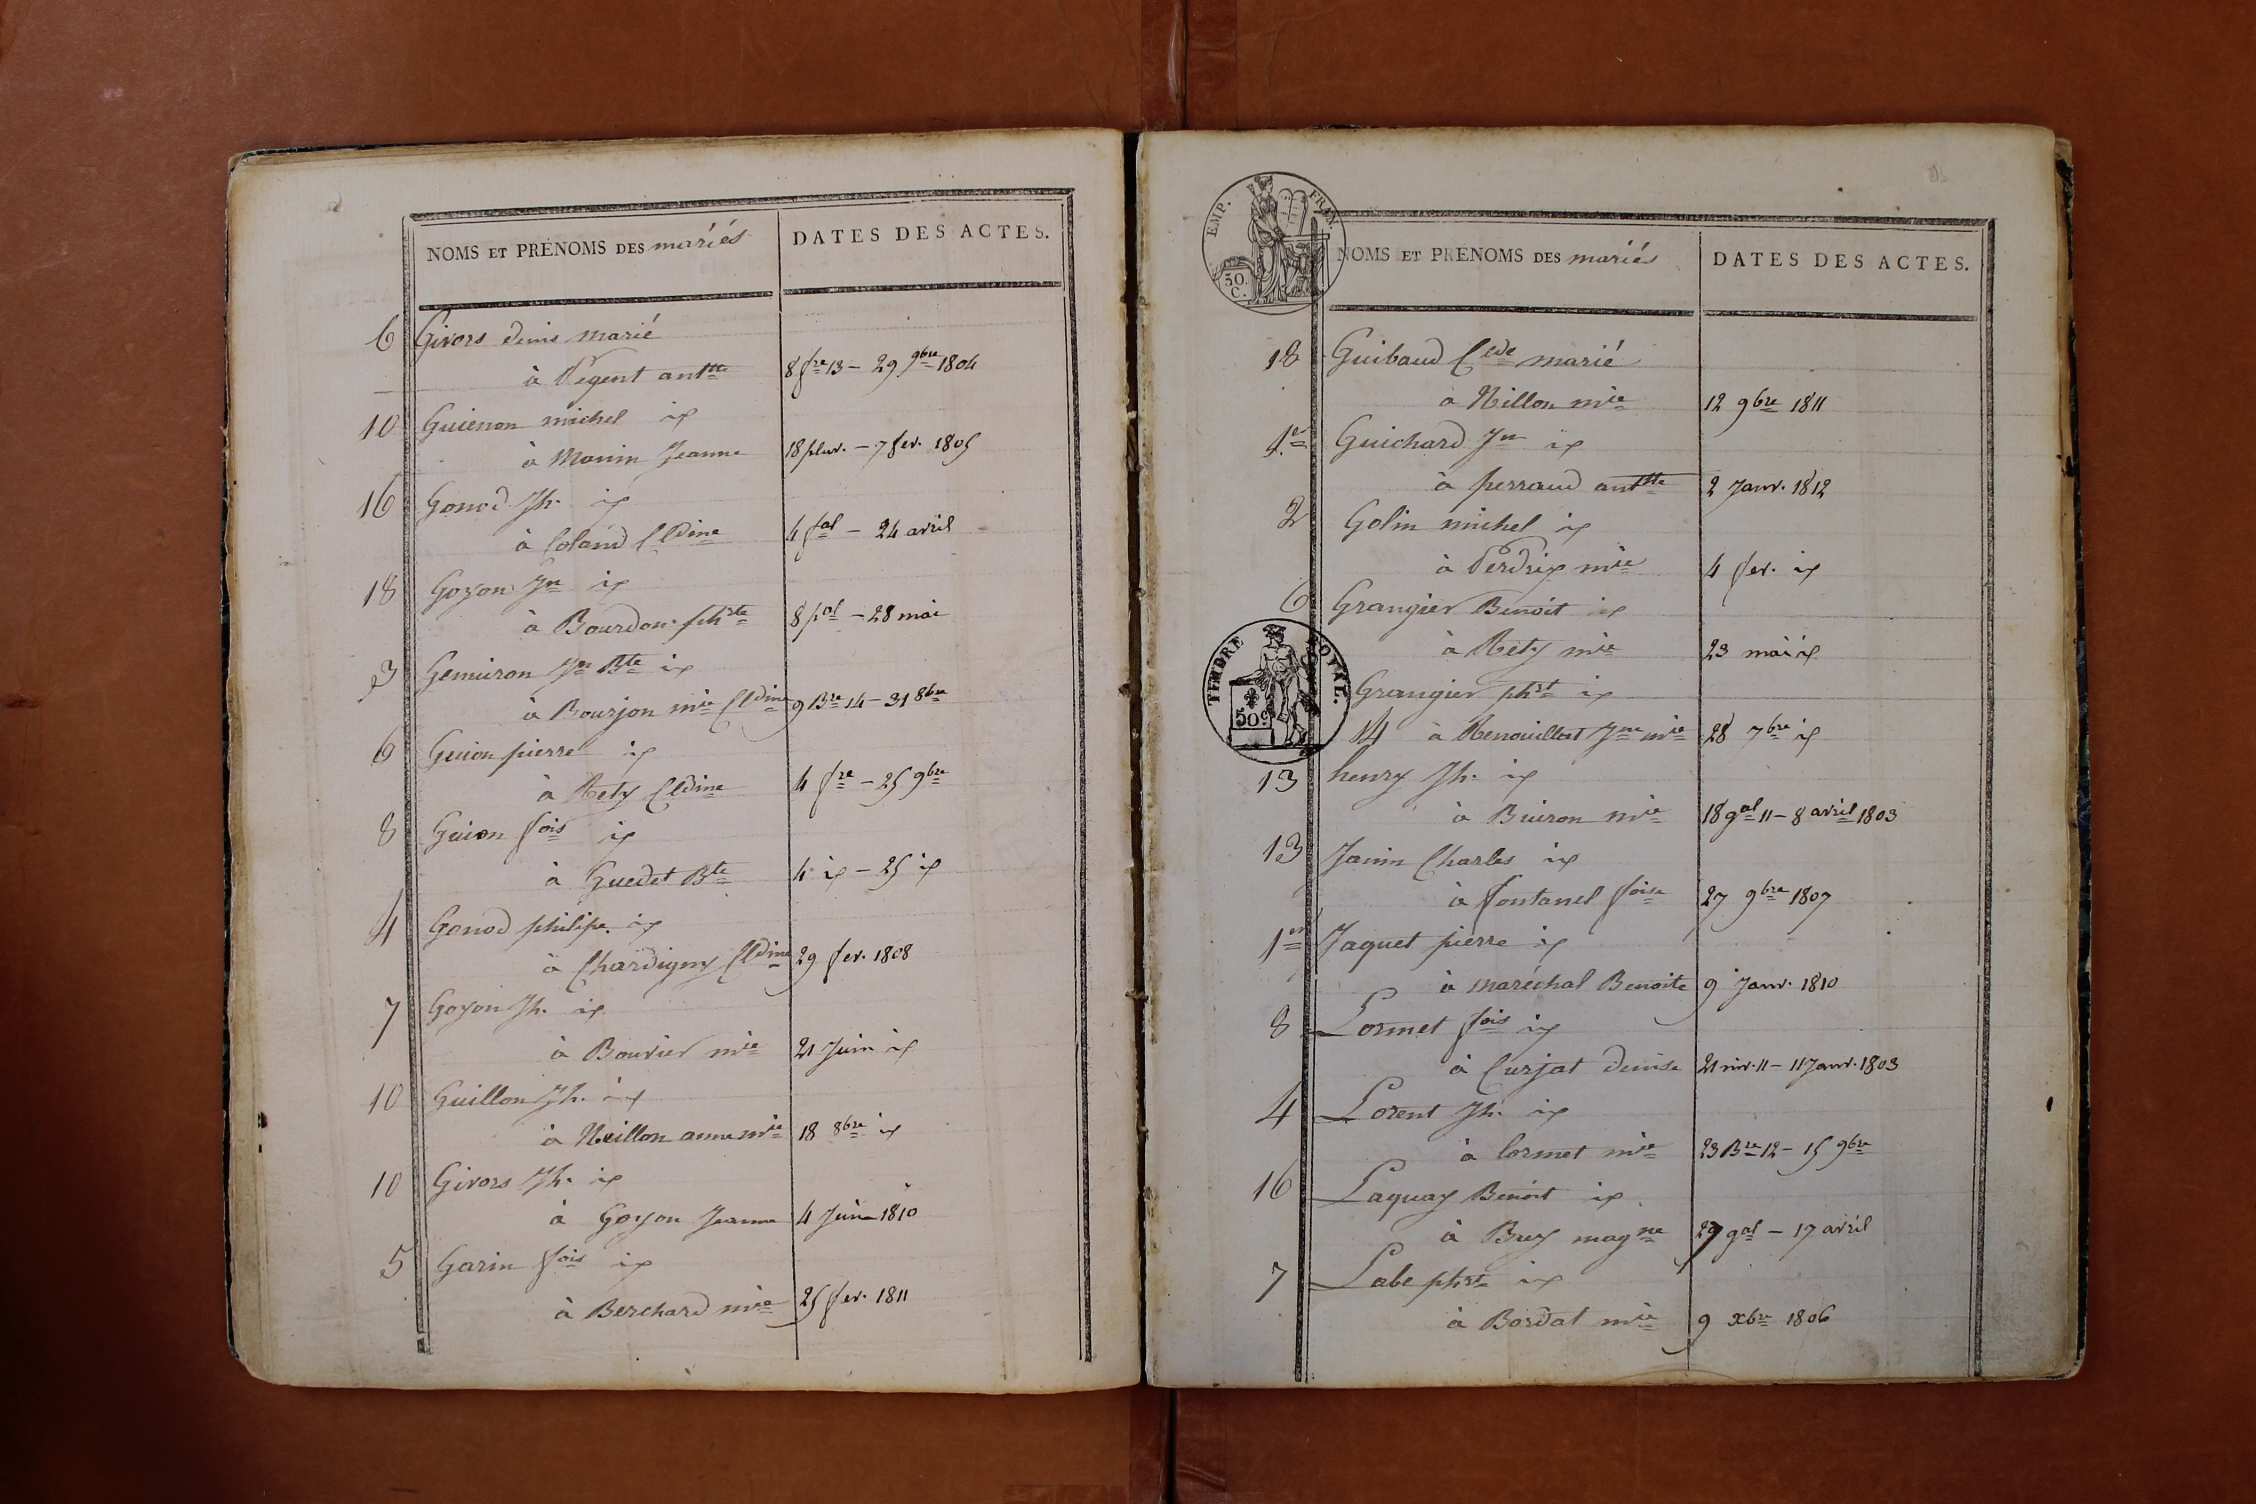 NOMS ET PRÉNOMS DES mariés DATES DES ACTES.
6 Givors denis marié
à Pegent antte 8 fre 13 – 29 9bre 1804
10 Guienon michel ix
à Monin Jeanne 18 pluv. – 7 fev. 1805
16 Gonod Jh. ix
à Coland Cldine 4 fal – 24 avril
18 Goyon Jn ix
à Bourdon phste 8 pal – 28 mai
3 Gemuron Jn Bte ix
à Bourjon mie Cldine 9 Bre 14 – 31 8bre
6 Guion pierre ix
à Rety Cldine 4 fre – 25 9bre
8 Guion fois ix
à Guedet Bte 4 ix – 25 ix
4 Gonod philipe ix
à Chardigny Cldine 29 fev. 1808
7 Goyon Jh. ix
à Bouvier mie 21 Juin ix
10 Guillon Jh. ix
à Neillon anne mie 18 8bre ix
10 Givors Jh. ix
à Goyon Jeanne 4 Juin 1810
5 Garin fois ix
à Berchard mie 25 fev. 1811
EMP. FRAN.
50. C.
NOMS ET PRENOMS DES mariés DATES DES ACTES.
18 Guibaud Clde marié
à Nillon mie 12 9bre 1811
1er Guichard Jn ix
à perraud antte 2 Janv. 1812
2 Golin michel ix
à Perdrix mie 4 fev. ix
6 Grangier Benoit ix
à Rety mie 23 mai ix
TIMBRE ROYAL.
50c
Grangier phst ix
14 à Renouillat Jne mie 28 7bre ix
13 henry Jh. ix
à Buiron mie 18 gal 11 – 8 avril 1803
13 Janin Charles ix
à fontanel foise 27 9bre 1807
1er Jaquet pierre ix
à maréchal Benoite 9 Janv. 1810
8 Lormet fois ix
à Curjat denise 21 niv. 11 – 11 Janv. 1803
4 Lorent Jh. ix
à Cormet mie 23 Bre 12 – 15 9bre
16 Laquay Benoit ix
à Buy magne 27 gal – 17 avril
7 Labe phste ix
à Bordat mie 9 xbre 1806